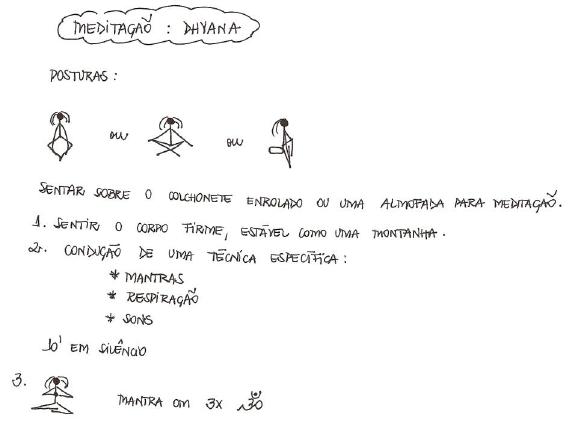 MEDITAÇÃO : DHYANA
POSTURAS :
OU OU
SENTAR SOBRE O COLCHONETE ENROLADO OU UMA ALMOFADA PARA MEDITAÇÃO.
1. SENTIR O CORPO FIRME, ESTÁVEL COMO UMA MONTANHA.
2. CONDUÇÃO DE UMA TÉCNICA ESPECÍFICA :
* MANTRAS
* RESPIRAÇÃO
* SONS
10' EM SILÊNCIO
3. MANTRA OM 3X ॐ